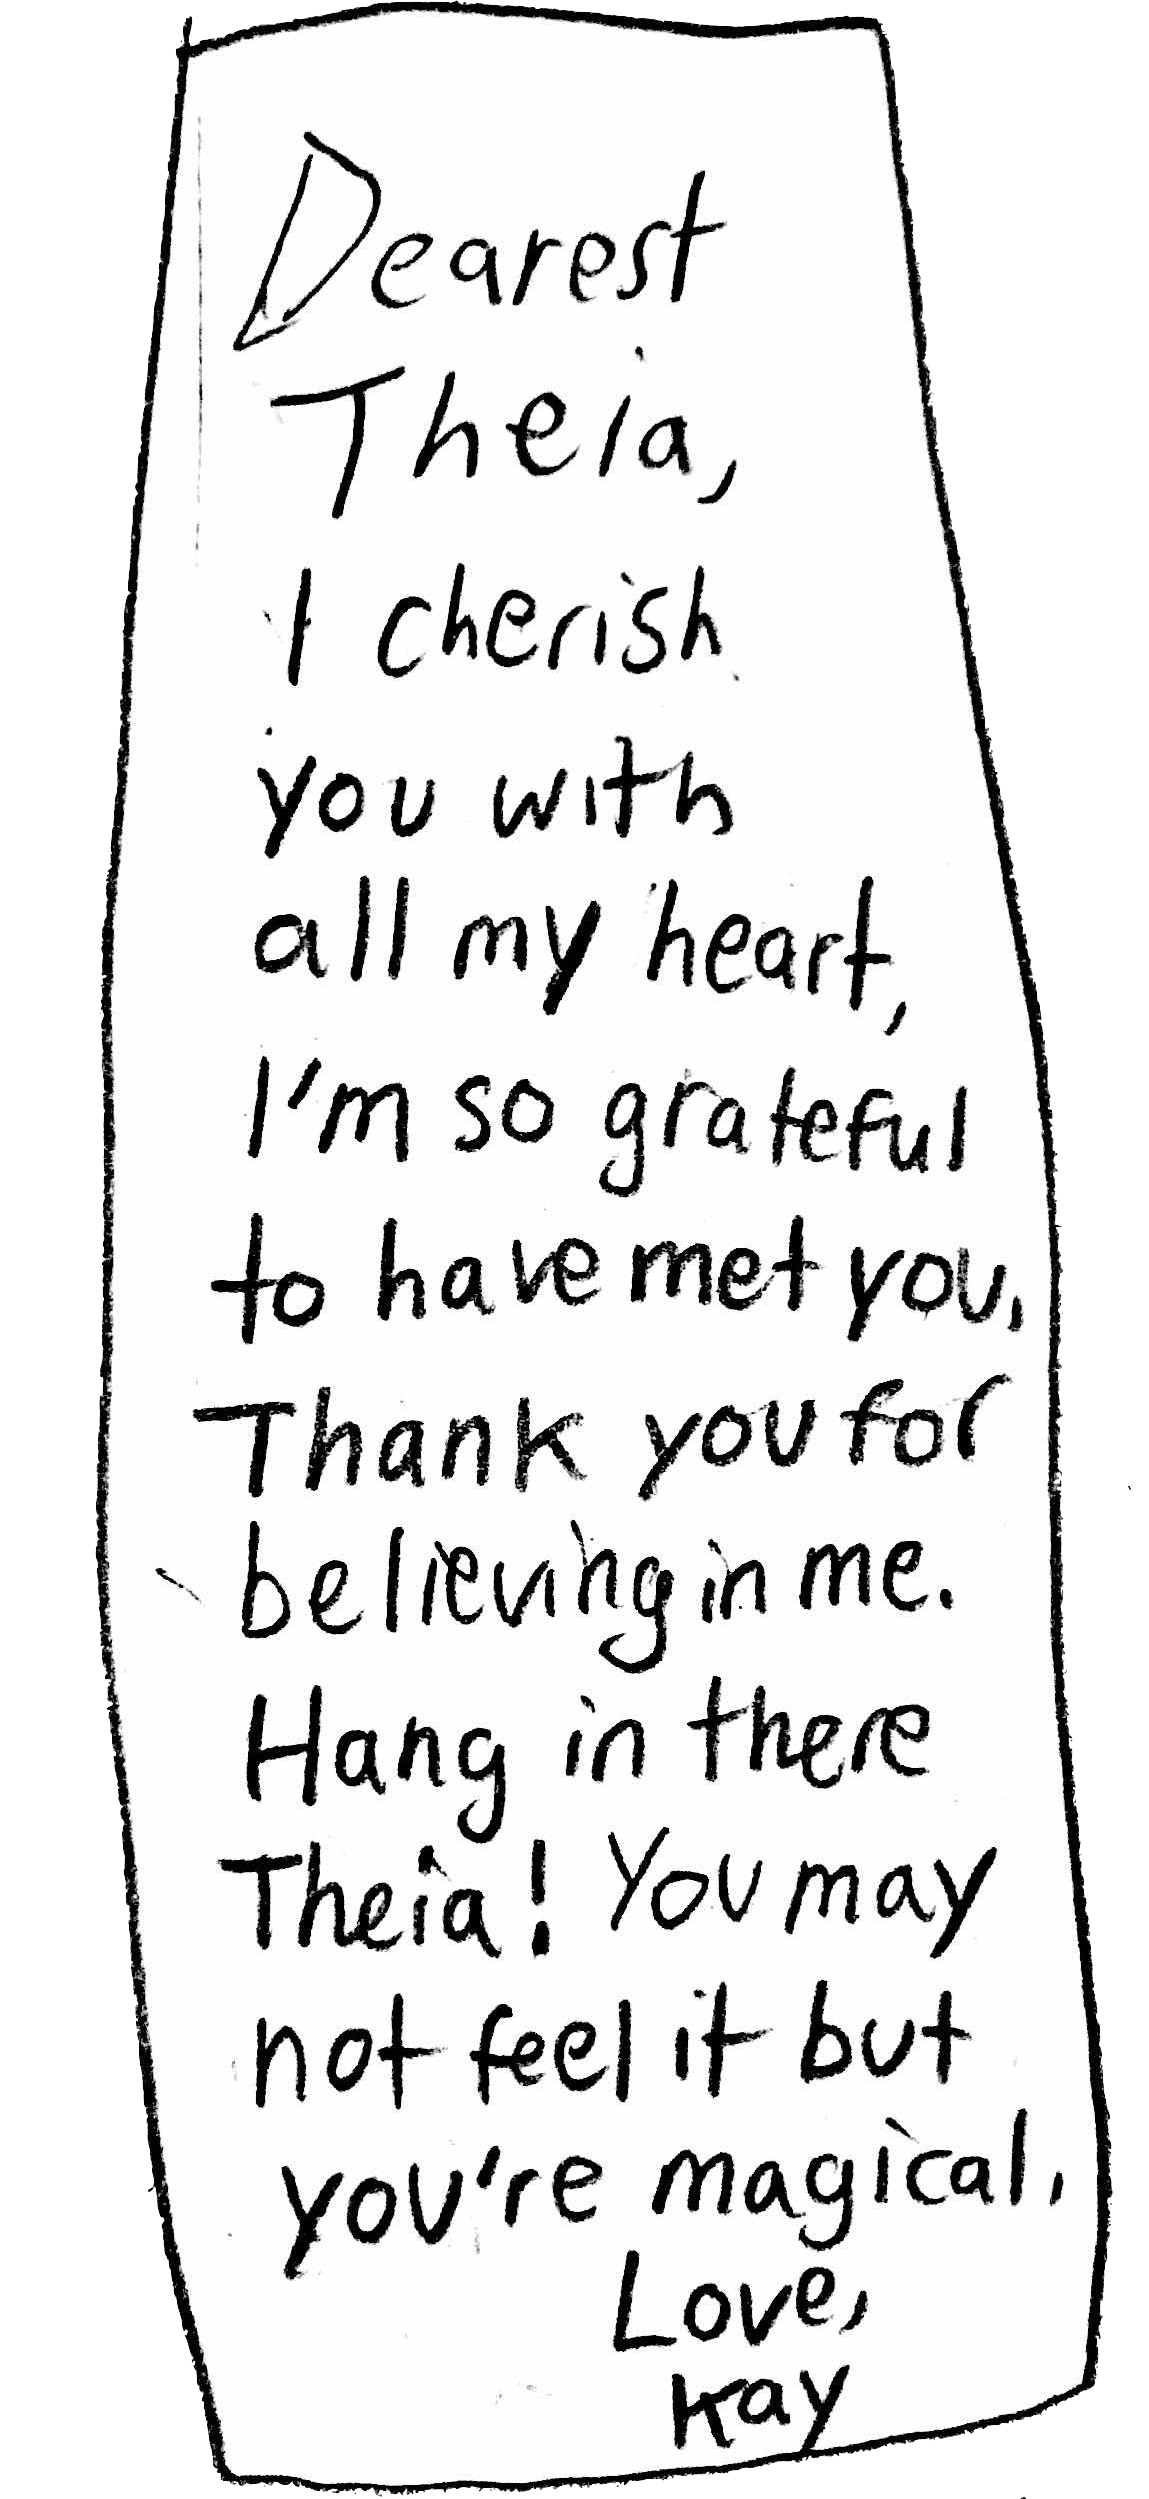 Dearest
Theia,
I cherish
you with
all my heart,
I'm so grateful
to have met you,
Thank you for
believing in me.
Hang in there
Theia! You may
not feel it but
you're magical.
Love,
Kay